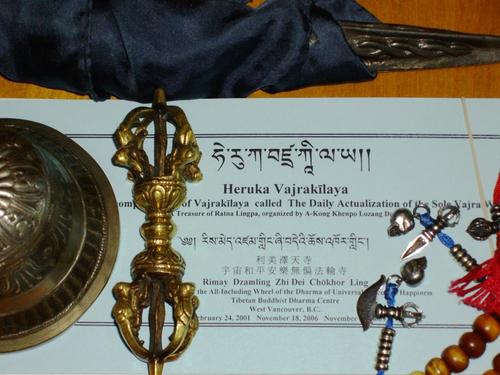 ཧེ་རུ་ཀ་བཛྲ་ཀཱི་ལ་ཡ།།
Heruka Vajrakīlaya
of Vajrakīlaya called The Daily Actualization of the Sole Vajra
Treasure of Ratna Lingpa, organized by A-Kong Khenpo Lozang
༄༅།། རིས་མེད་འཛམ་གླིང་ཞི་བདེའི་ཆོས་འཁོར་གླིང་།
利美澤天寺
宇宙和平安樂無偏法輪寺
Rimay Dzamling Zhi Dei Chökhor Ling
the All-Including Wheel of the Dharma of Universal Happiness
Tibetan Buddhist Dharma Centre
West Vancouver, B.C.
24, 2001 November 18, 2006